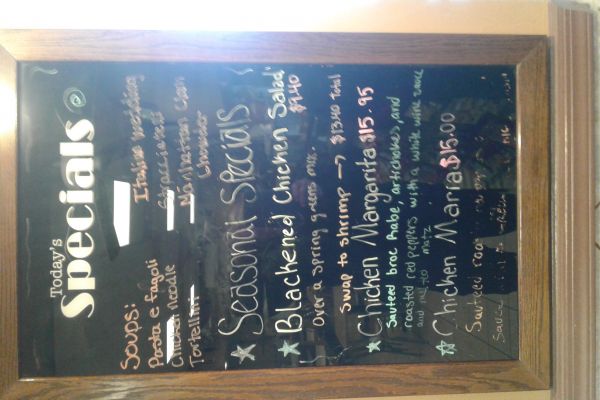 Today's
Specials
Soups:
Pasta e fagoli
Chicken Noodle
Tortellini
Italian Wedding
Stracciatella
Manhattan Clam
Chowder
Seasonal Specials
Blackened Chicken Salad $9.40
over a spring greens mix.
swap to shrimp → $13.40 total
Chicken Margarita $15.95
Sauteed broc Rabe, artichokes, and
roasted red peppers with a white wine sauce
and
Chicken Maria $15.00
Sauteed
Sauce